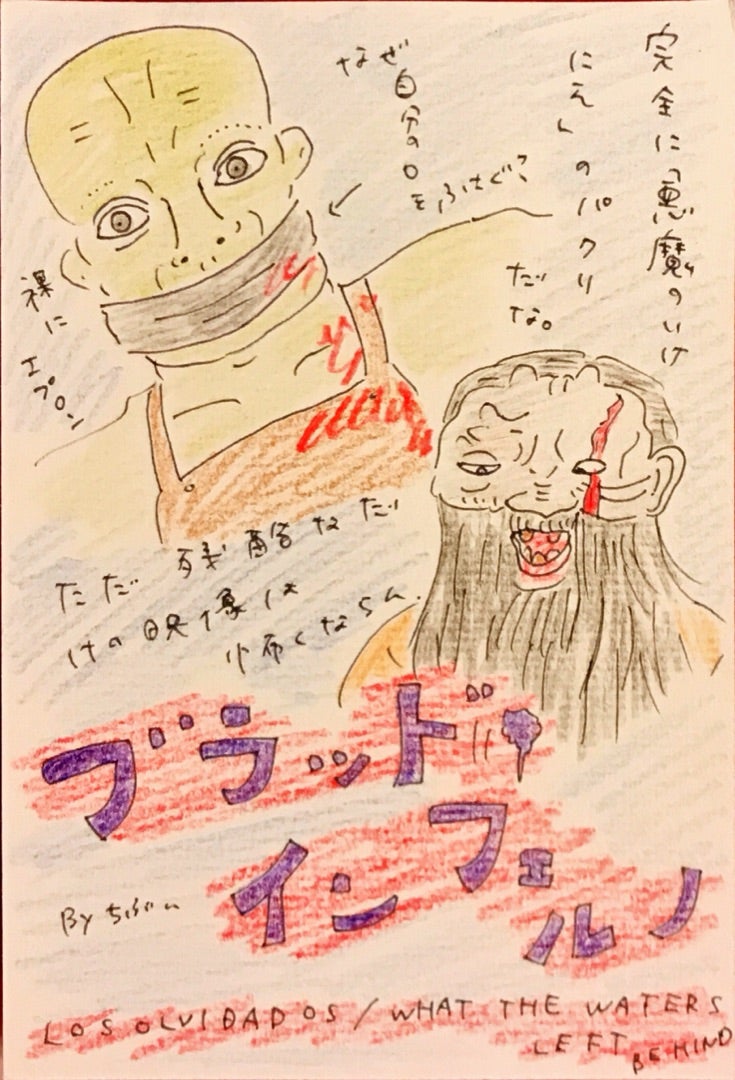 完全に「悪魔のいけ
にえ」のパクリ
だな。
なぜ
自分の口
をふさぐ？
裸に
エプロン
ただ残酷なだ
けの映像は
怖くならん.
ブラッド・
インフェルノ
By ちぶー
LOS OLVIDADOS / WHAT THE WATERS
LEFT BEHIND